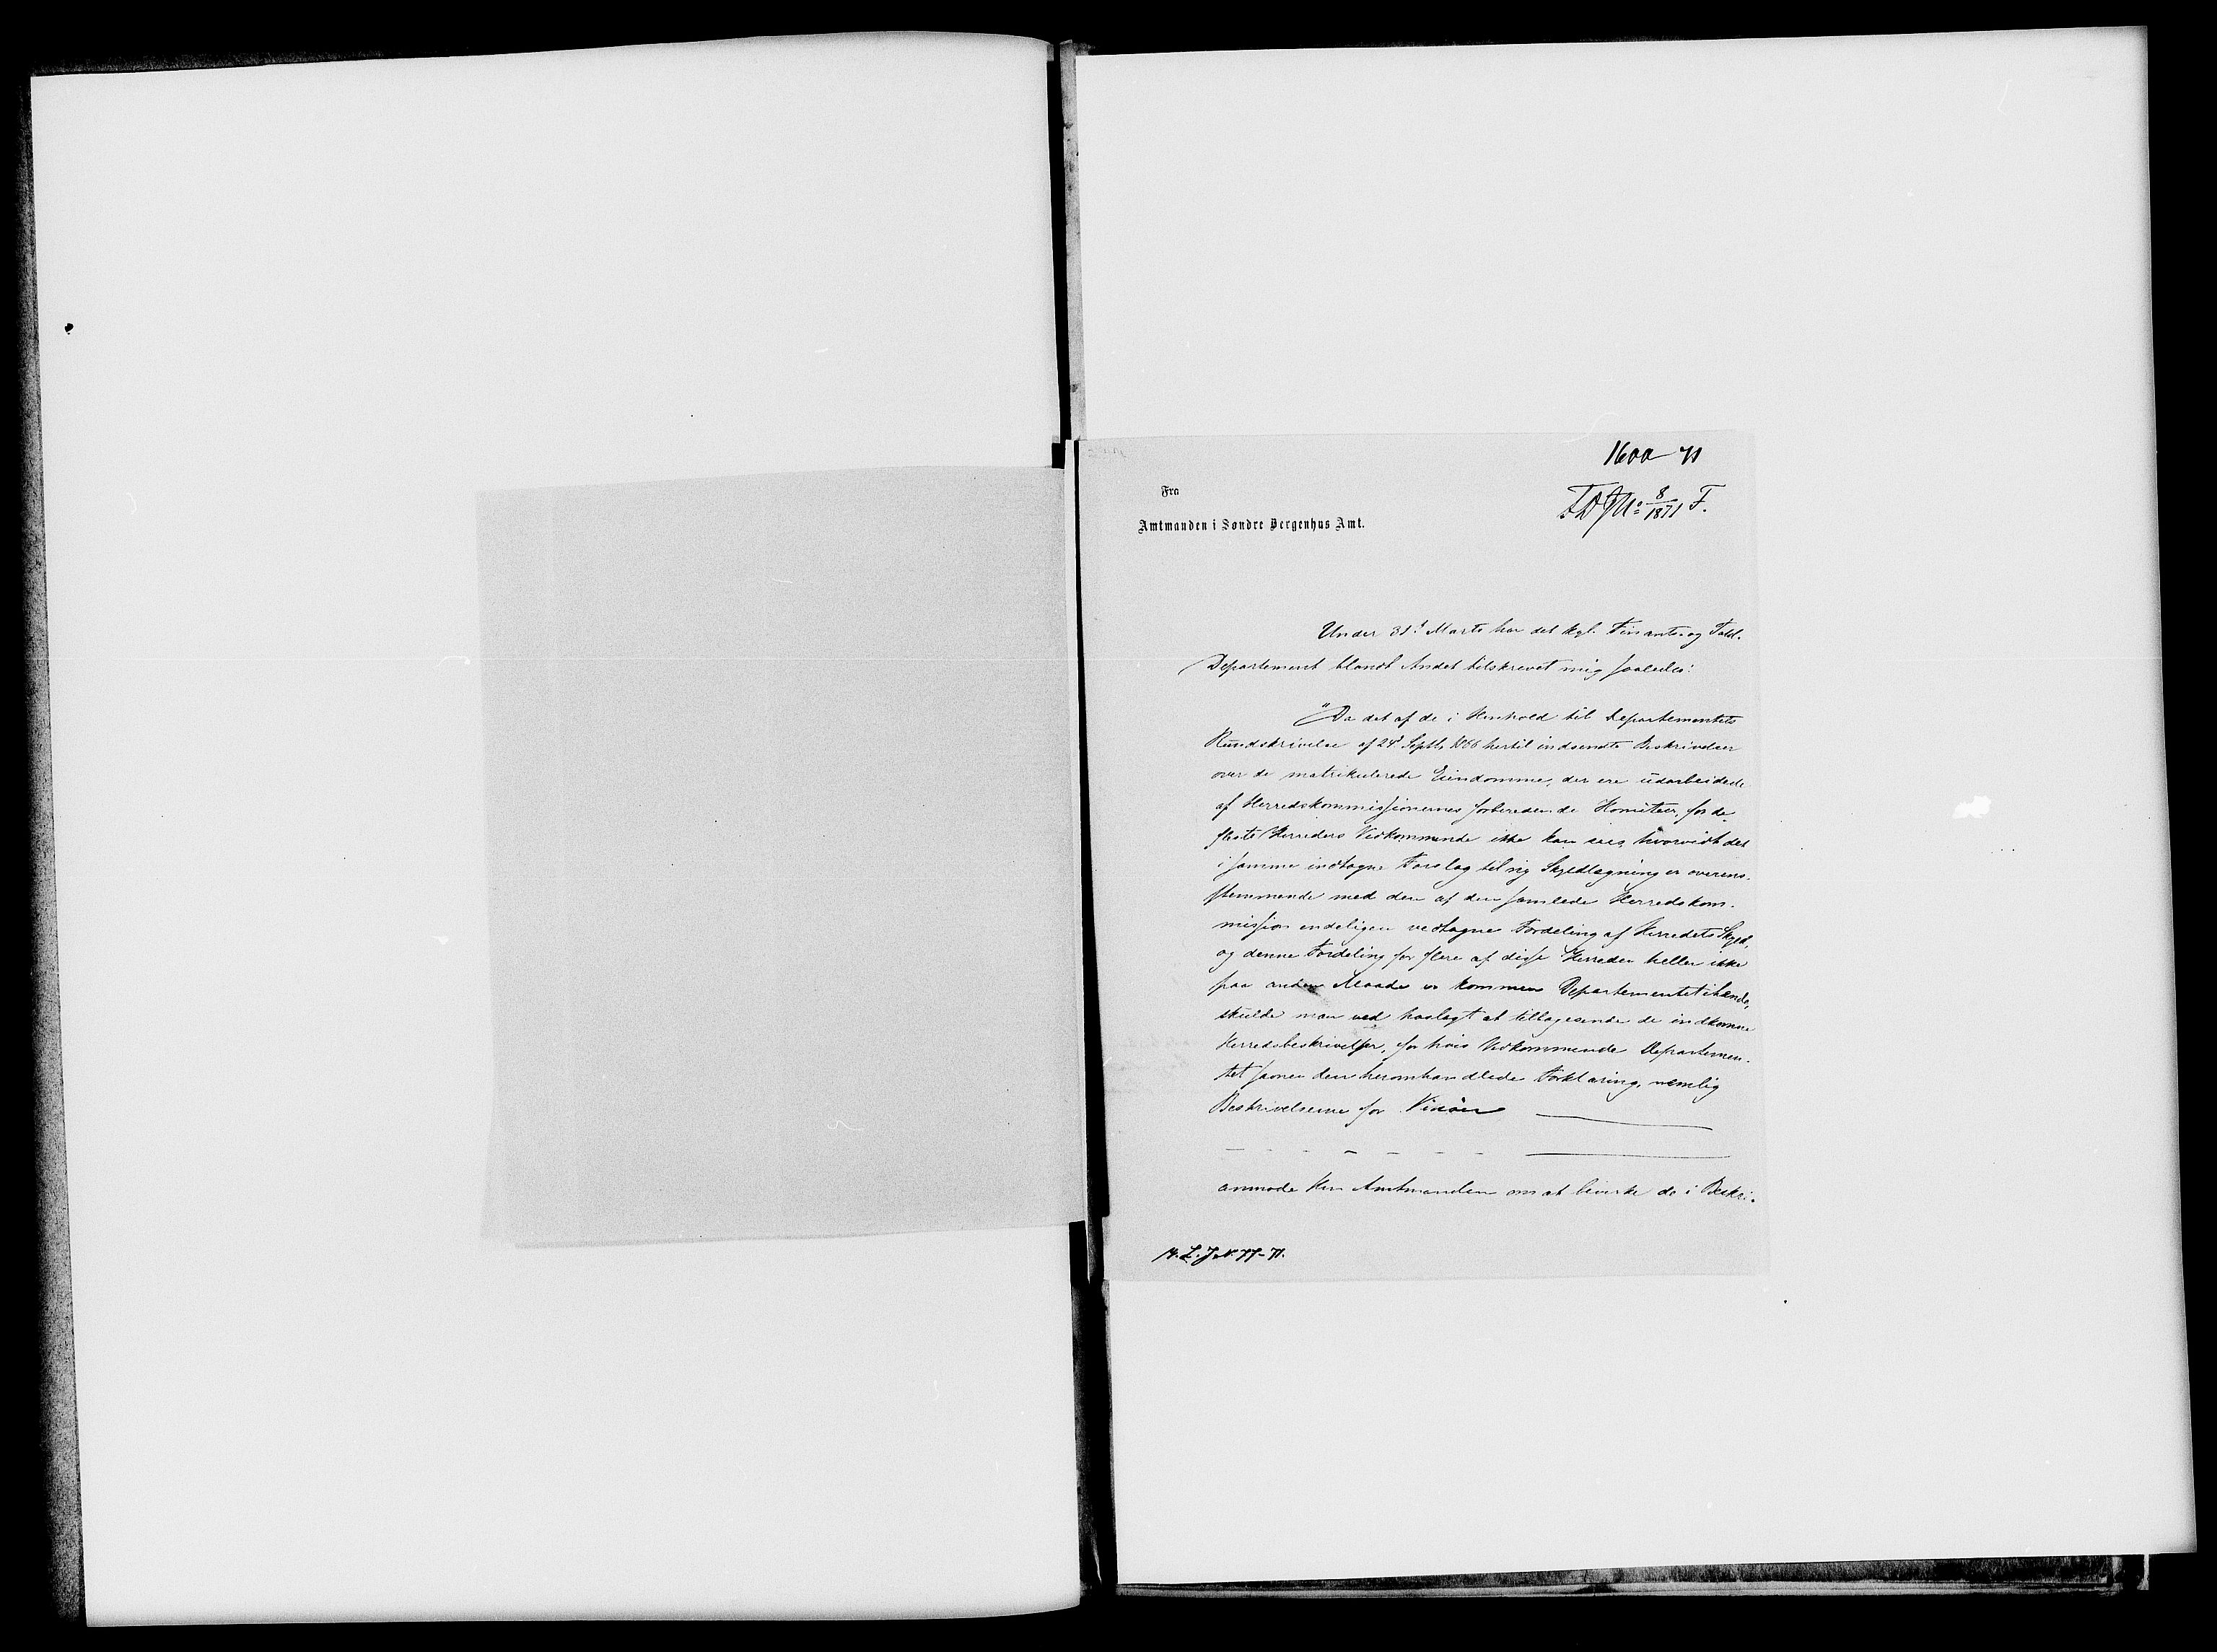 1600 71
Fra
F D J N: 8/1871 F.
Amtmanden i Søndre Bergenhus Amt.
Under 31 Marts har det kgl. Finants- og Told-
Departement blandt Andet tilskrevet mig saaledes:
"Da det af de i Henhold til Departementets
Rundskrivelse af 24 Septb. 1866 hertil indsendte Beskrivelser
over de matrikulerede Eiendomme, der ere udarbeidede
af Herredskommissionernes forberedende Komiteer, for de
fleste Herreders Vedkommende ikke kan sees, hvorvidt det
i samme indtagne Forslag til ny Skyldlægning er overens-
stemmende med den af den samlede Herredskom-
mission endeligen vedtagne Fordeling af Herredets Skyld,
og denne Fordeling for flere af disse Herreder heller ikke
paa anden Maade er kommen Departementet ihænde,
skulde man ved hoslagt at tilbagesende de indkomne
Herredsbeskrivelser, for hvis Vedkommende Departemen-
tet savner den heromhandlede Forklaring, nemlig
Beskrivelserne for Vikør
anmode Hr. Amtmanden om at bevirke de i Beskri-
M. L. J. N. 77-71.